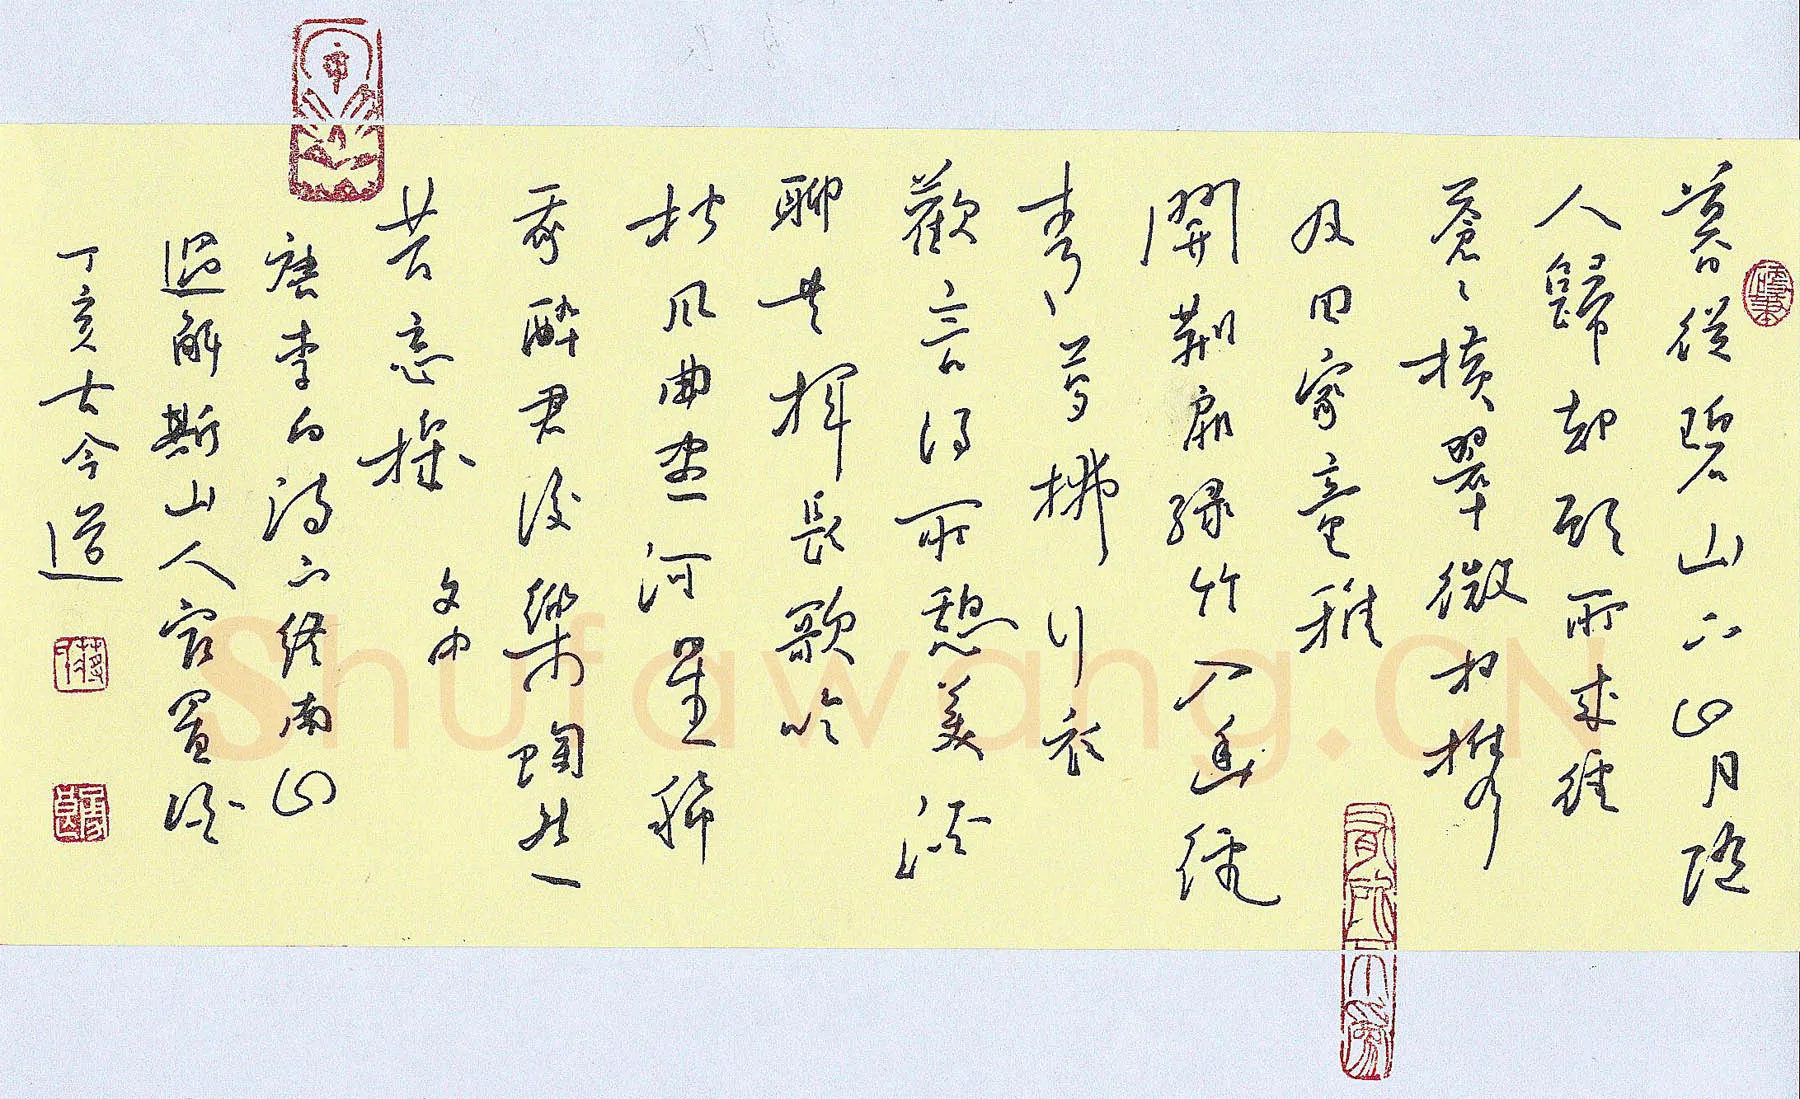 暮從碧山下山月隨
人歸却顧所来徑
蒼々橫翠微相攜
及田家童稚
開荊扉緑竹入幽徑
青蘿拂行衣
歡言得所憩美酒
聊共揮長歌吟
松風曲盡河星稀
我醉君復樂陶然
共忘機
唐李白詩下終南山
過斛斯山人宿置酒
丁亥古今道
Shufawang.CN